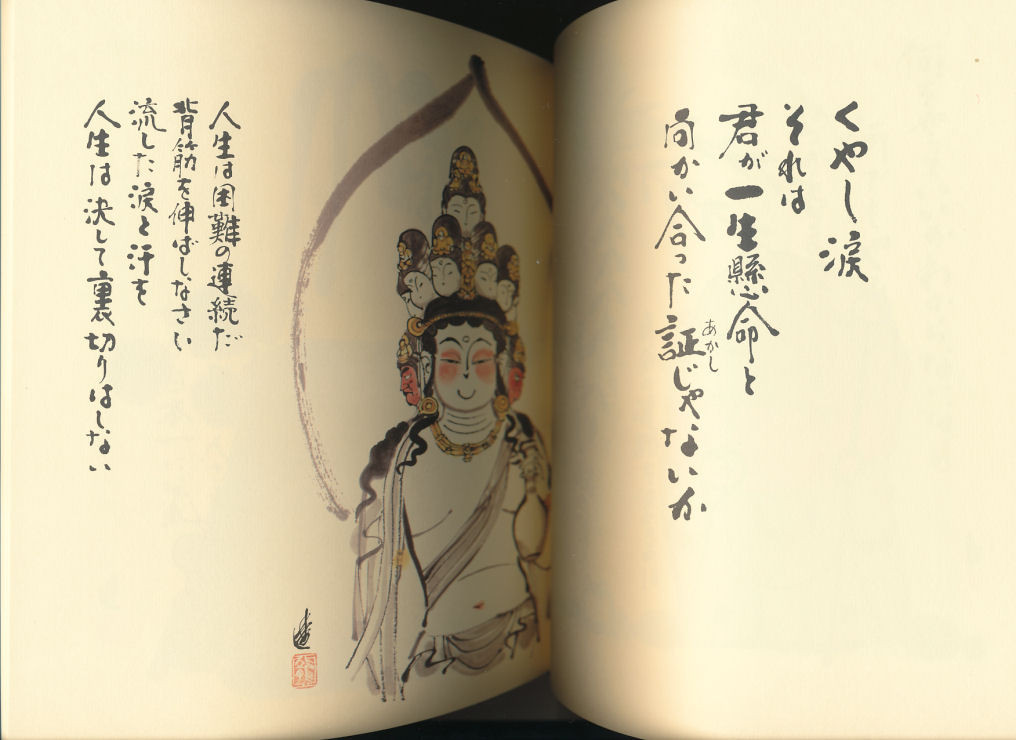 くやし涙
それは
君が一生懸命と
向かい合った
証じゃないか
あかし
人生は困難の連続だ
背筋を伸ばしなさい
流した涙と汗を
人生は決して裏切りはしない